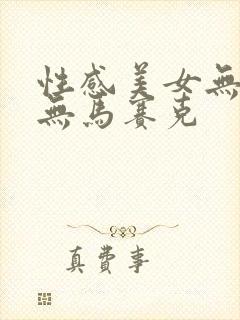 性感美女無
無馬賽克
真費事